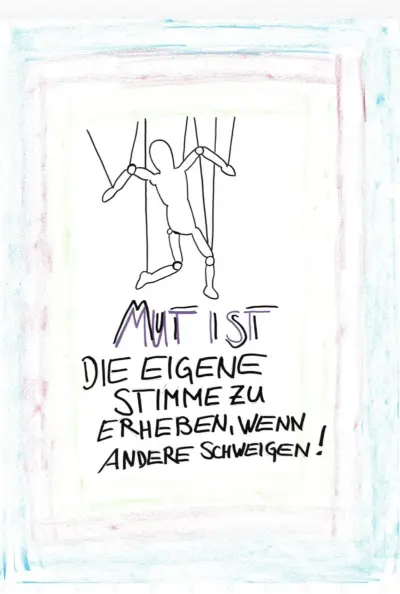 MUT IST
DIE EIGENE
STIMME ZU
ERHEBEN, WENN
ANDERE SCHWEIGEN!